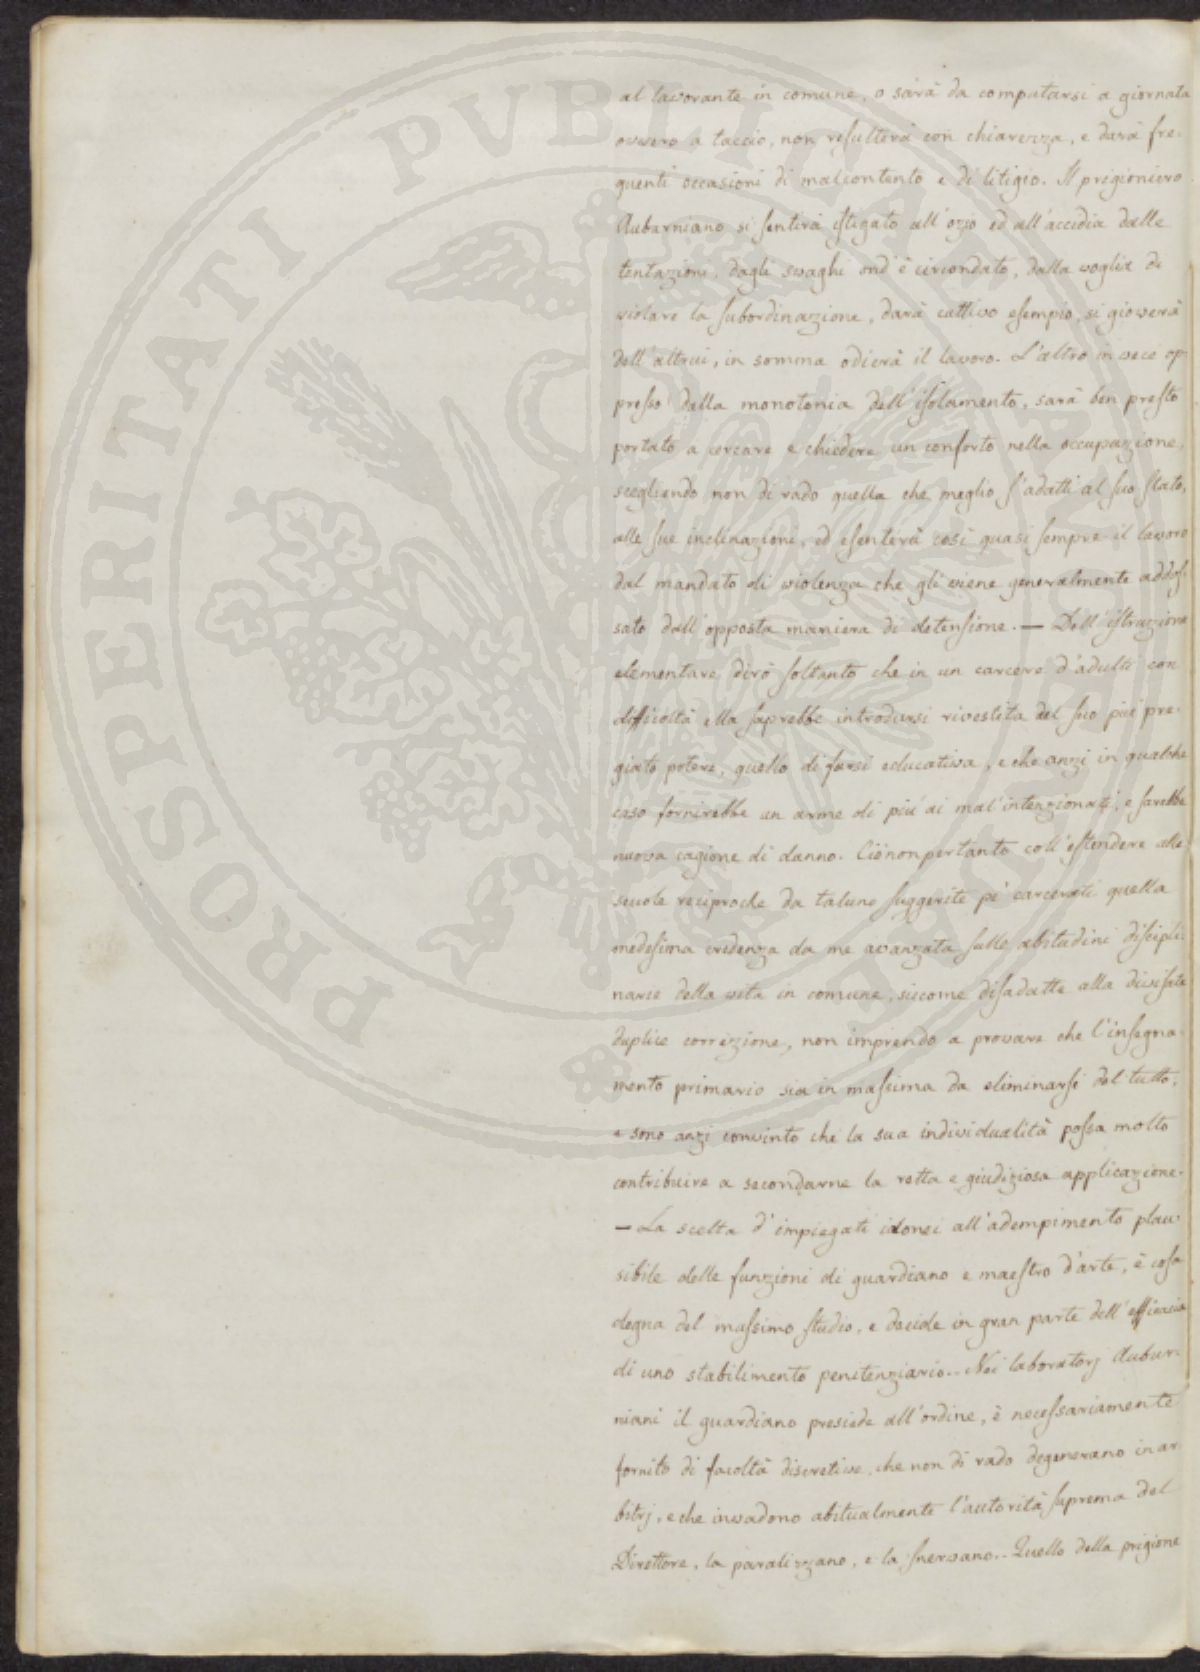 PROSPERITATI PVBLICAE AVGENDAE
al lavorante in comune, o sarà da computarsi a giornata
ovvero a taccio, non resulterà con chiarezza, e darà fre-
quenti occasioni di malcontento e di litigio. Il prigioniero
Auburniano si sentirà istigato all'ozio ed all'accidia dalle
tentazioni, dagli svaghi ond'è circondato, dalla voglia di
violare la subordinazione, darà cattivo esempio, si gioverà
dell'altrui, in somma odierà il lavoro. L'altro in vece op-
presso dalla monotonia dell'isolamento, sarà ben presto
portato a cercare e chiedere un conforto nella occupazione,
scegliendo non di rado quella che meglio s'adatti al suo stato,
alle sue inclinazioni, ed esenterà così quasi sempre il lavoro
dal mandato di violenza che gli viene generalmente addos-
sato dall'opposta maniera di detensione. — Dell'istruzione
elementare dirò soltanto che in un carcere d'adulti con
difficoltà ella saprebbe introdursi rivestita del suo più pre-
giato potere, quello di farsi educativa, e che anzi in qualche
caso fornirebbe un arme di più ai mal'intenzionati, e sarebbe
nuova cagione di danno. Ciònonpertanto coll'estendere alle
scuole reciproche da taluno suggerite pe' carcerati quella
medesima credenza da me avanzata sulle abitudini discipli-
narie della vita in comune, siccome disadatte alla divisata
duplice correzione, non imprendo a provare che l'insegna-
mento primario sia in massima da eliminarsi del tutto,
e sono anzi convinto che la sua individualità possa molto
contribuire a secondarne la retta e giudiziosa applicazione.
— La scelta d'impiegati idonei all'adempimento plau-
sibile delle funzioni di guardiano e maestro d'arte, è cosa
degna del massimo studio, e decide in gran parte dell'efficacia
di uno stabilimento penitenziario.. Nei laboratorj Aubur-
niani il guardiano presiede all'ordine, è necessariamente
fornito di facoltà discretive, che non di rado degenerano in ar-
bitrj, e che invadono abitualmente l'autorità suprema del
Direttore, la paralizzano, e la snervano.. Quello della prigione